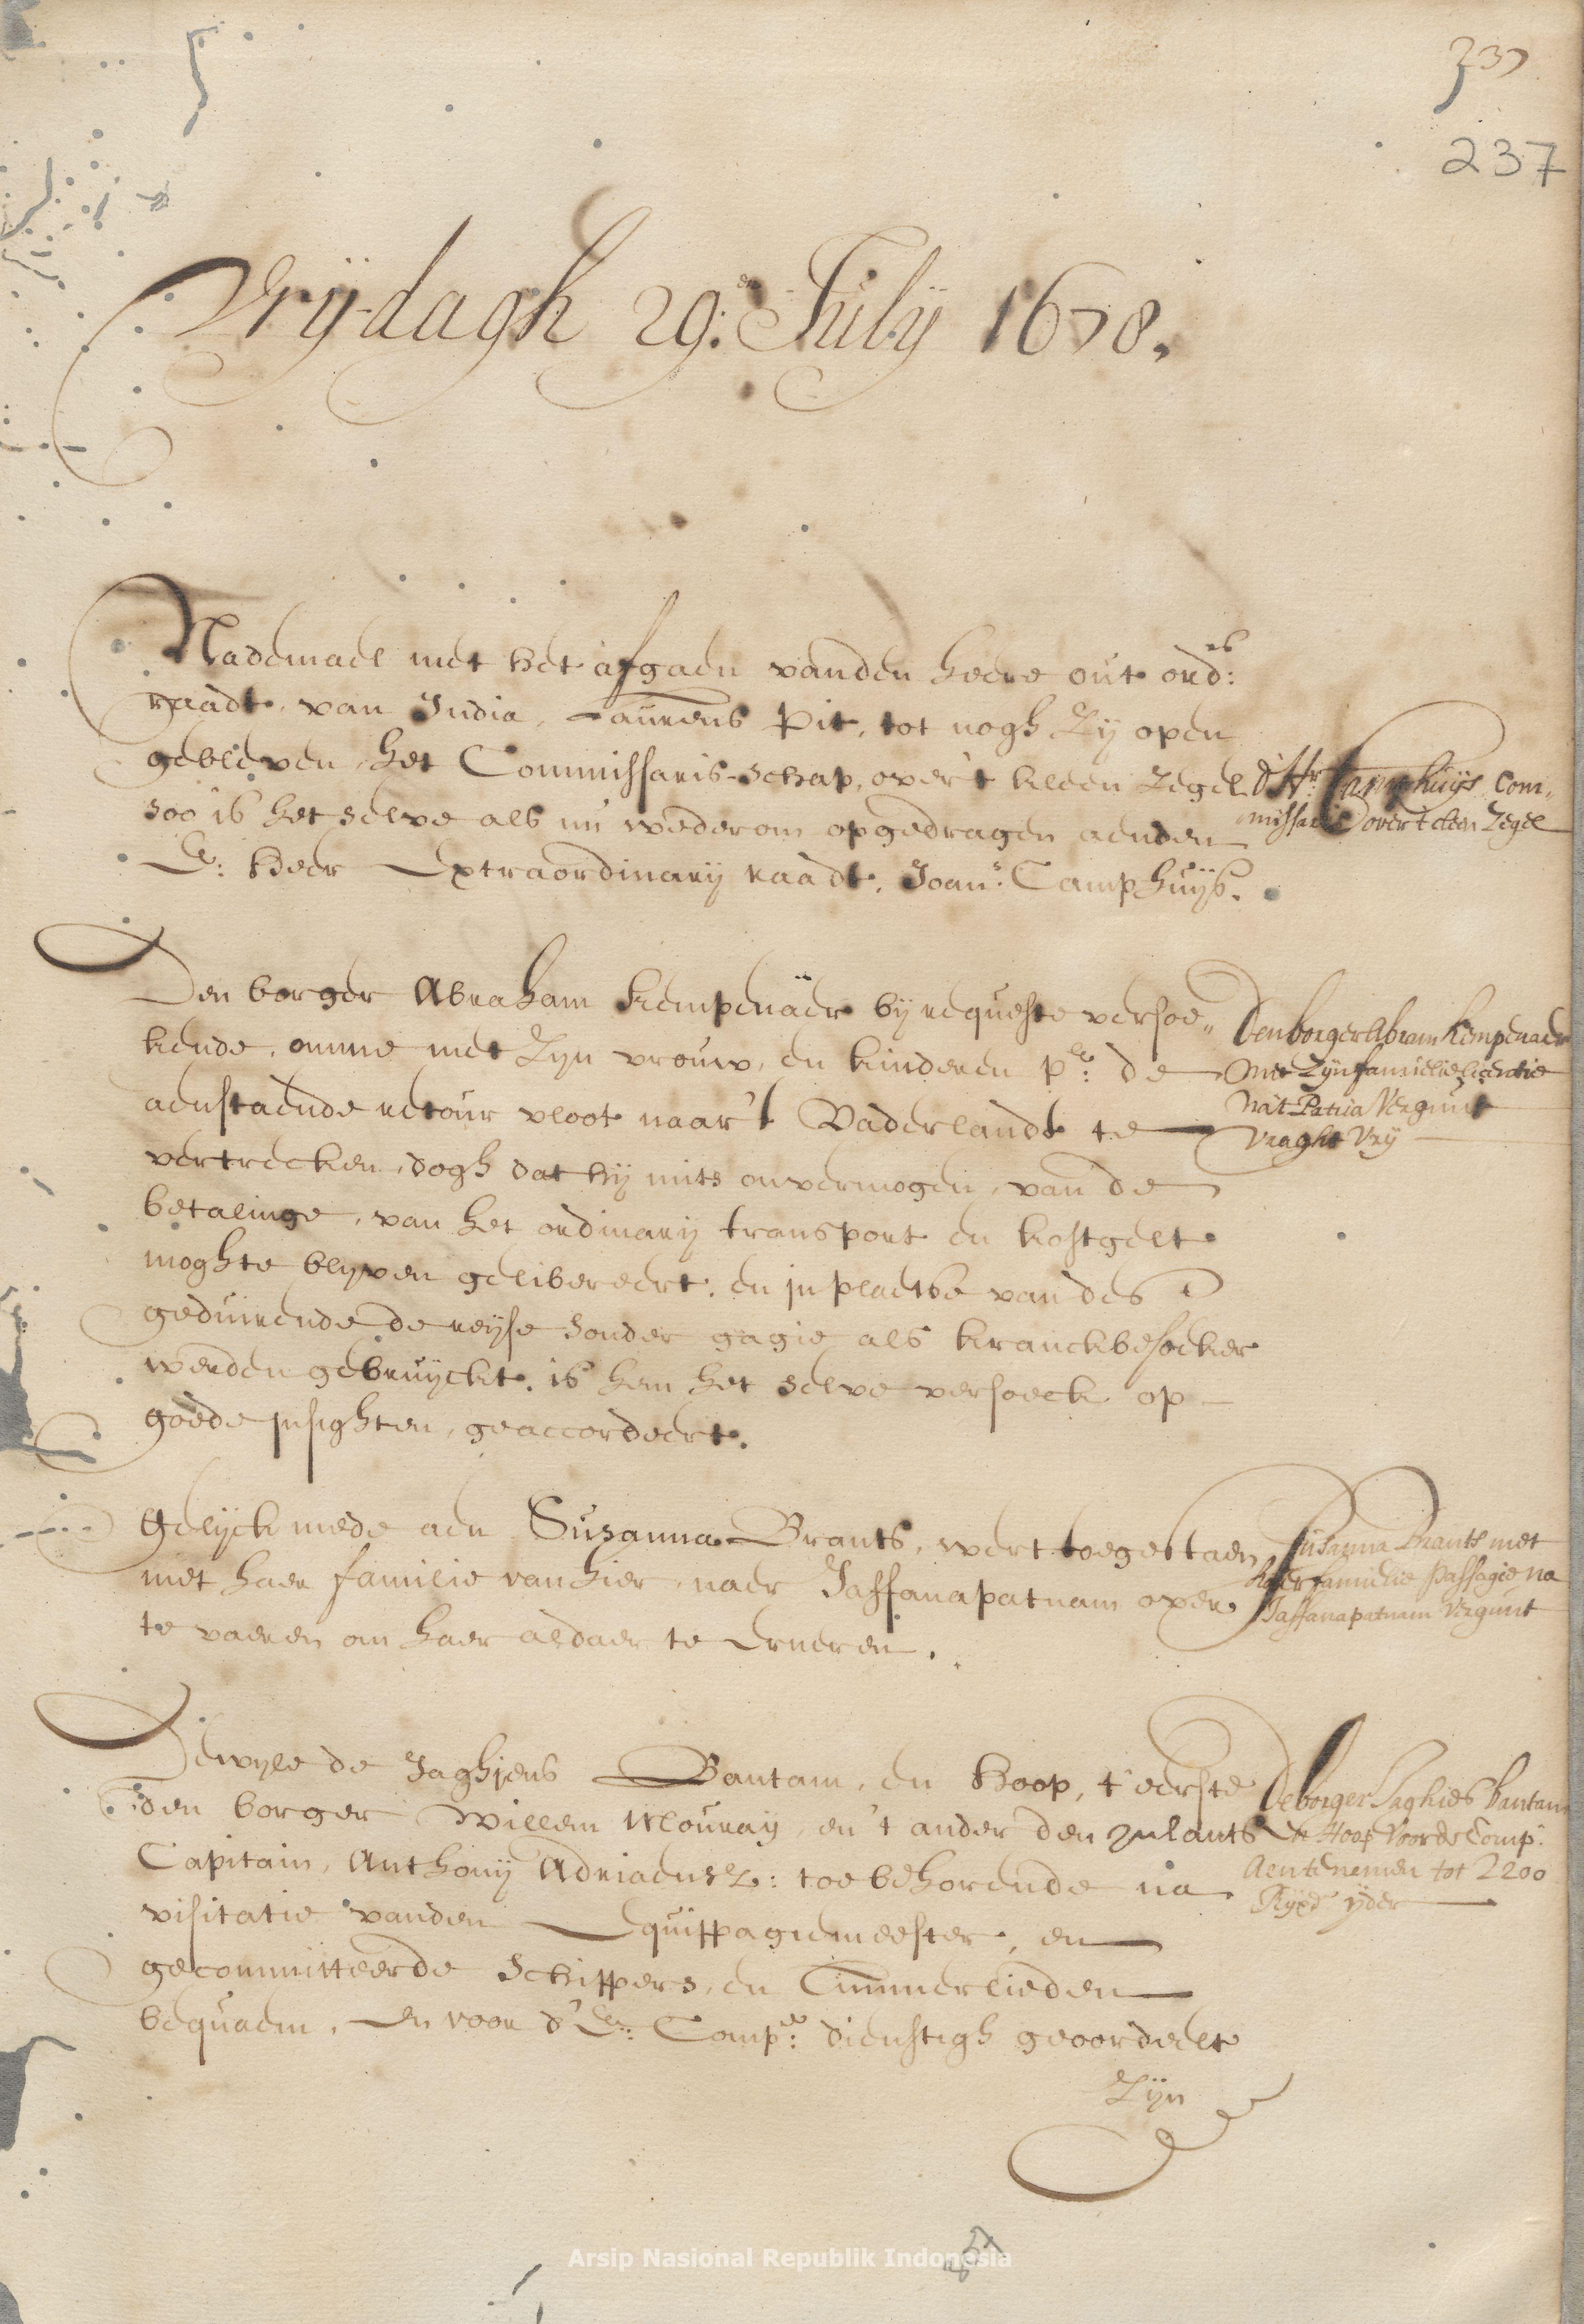 237
237
Vrydagh 29:en July 1678.
Nademael met het afgaen vanden heere out ord:es
raadt, van India, Laurens Pit, tot nogh Zy open
gebleven, het Commissaris-schap, over 't kleen Zegel
soo is het selve als nu wederom opgedragen aenden
E: Heer Extraordinary raadt, Joan:s Camphuys.
d' Hr: Camphuys Com,,
missaris over 't cleen Zegel
Den borger Abraham kempenaer by requeste versoe,,
kende, omme met Zyn vrouw, en kinderen p:r de
aenstaende retour vloot naar 't Vaderlandt te
vertrecken, dogh dat hy mits onvermogen, van de
betalinge, van het ordinary transport en kostgelt
moghte blyven gelibereert, en in plaetse van des
geduirende de reyse sonder gagie als kranckbesoeker
werden gebruyckt, is hem het selve versoeck op
goede insighten, geaccordeert.
Den borger Abram kempenaer
met Zyn familie licentie
na 't Patria Vergunt
Vraght Vry
Gelyck mede aen Susanna Brants, wert toegestaen
met haer familie van hier, naer Jaffanapatnam over
te vaeren om haer aldaer te Erneren.
Susanna Brants met
haer familie passagie na
Jaffanapatnam Vergunt
Dewyle de Jaghjens Bantam, en Hoop, t' eerste
den borger Willem Mouray, en 't ander den Inlants
Capitain, Anthony Adriaensz: toebehorende na
visitatie vanden Equippagiemeester, en
gecommitteerde Schippers, en Timmerlieden
bequaem, En voor d' E: Comp:e dienstigh geoordeelt
Zyn
De borger Jaghies bantam
en Hoop Voor de Comp:
Aentenemen tot 2200
Ryxd:s yder
Arsip Nasional Republik Indonesia